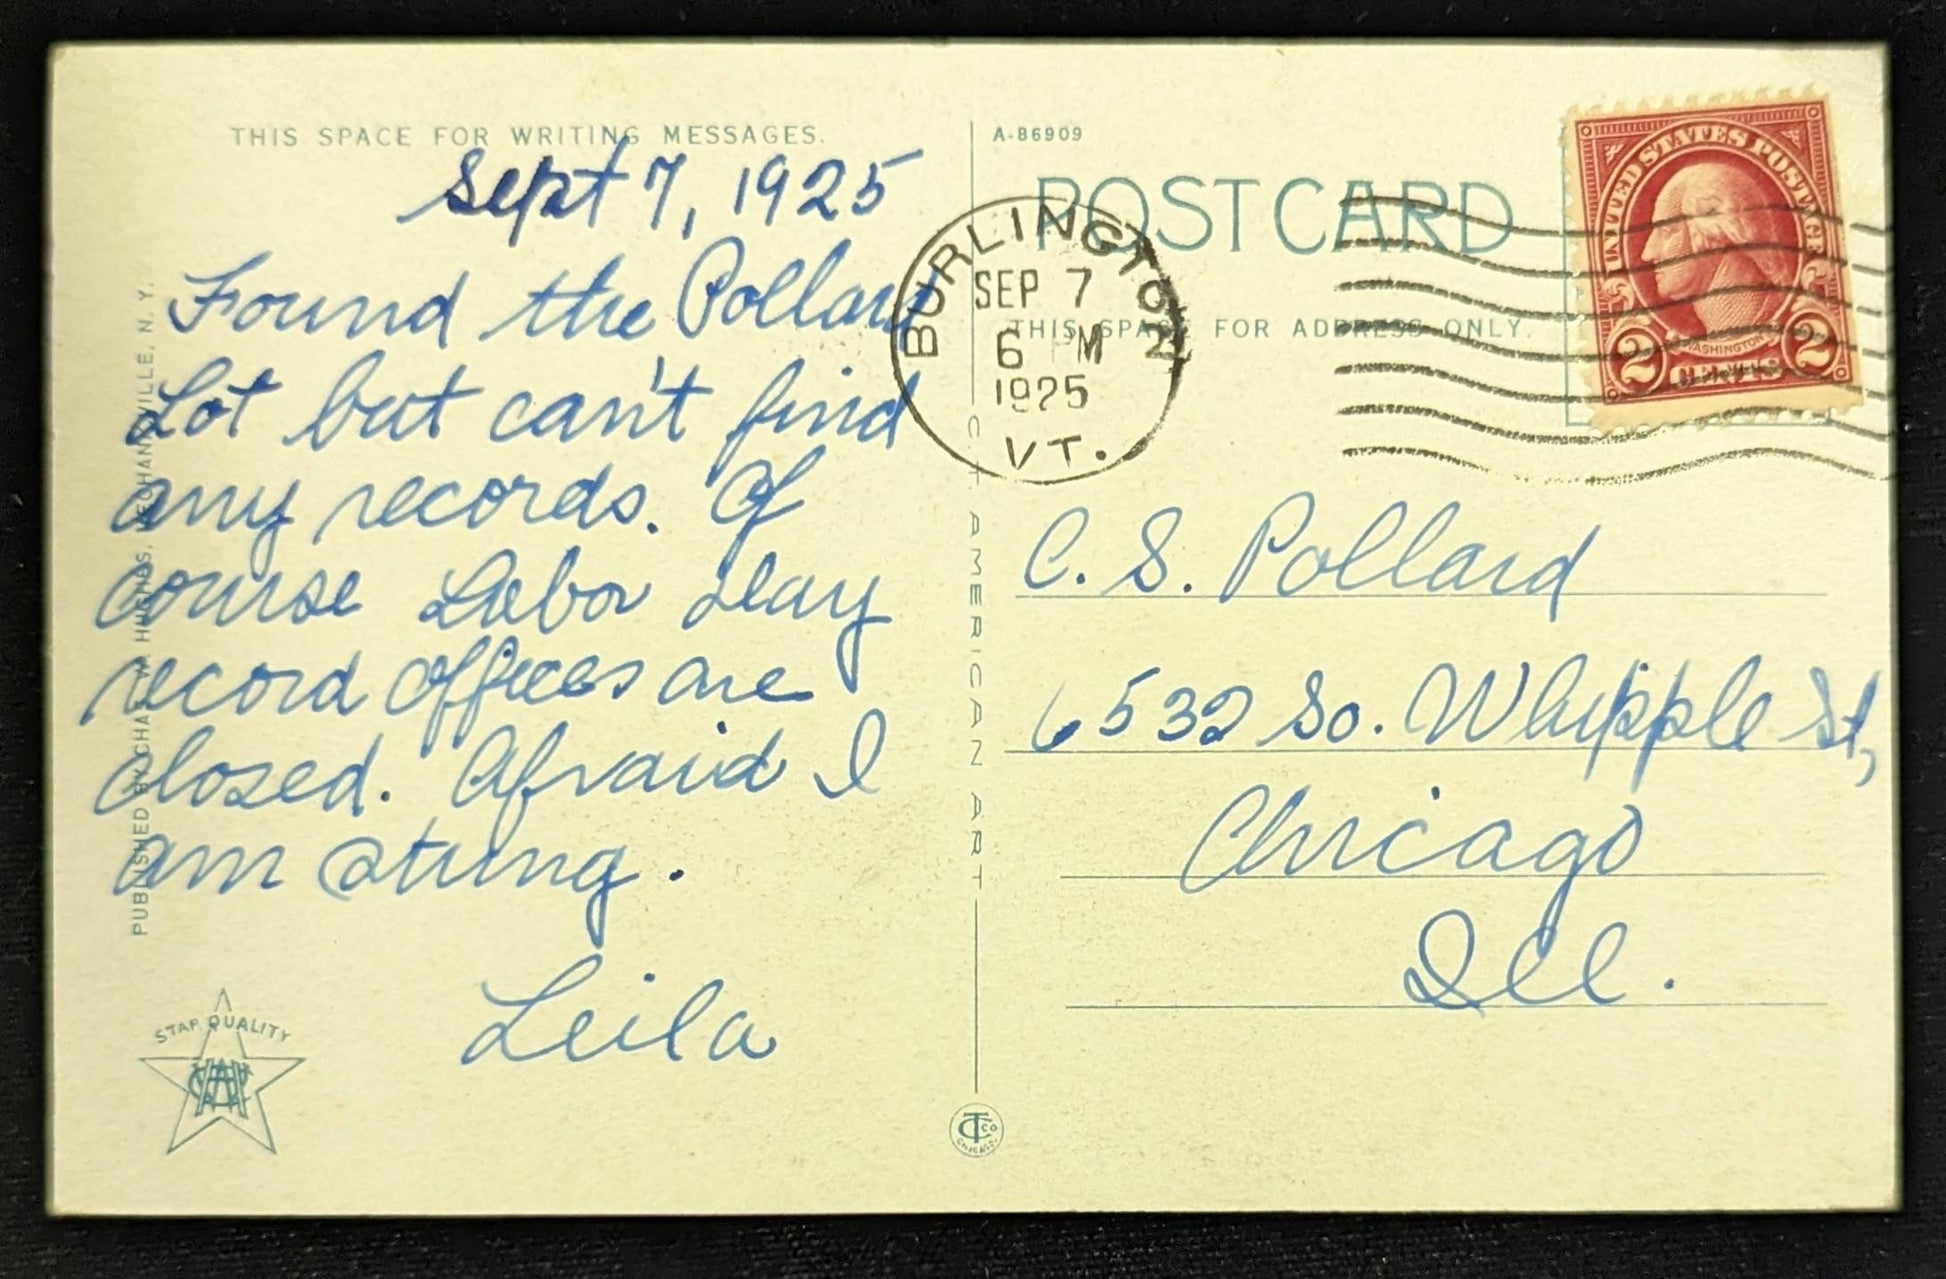 THIS SPACE FOR WRITING MESSAGES.
Sept 7, 1925
Found the Pollard
Lot but can't find
any records. Of
course Labor Day
record offices are
closed. Afraid I
am stung.
Leila
PUBLISHED BY CHAS. W. HUGHES, MECHANICVILLE, N. Y.
STAR QUALITY
C. T. AMERICAN ART
A-86909
POST CARD
THIS SPACE FOR ADDRESS ONLY.
BURLINGTON
SEP 7
6 PM
1925
VT.
UNITED STATES POSTAGE
WASHINGTON
2 CENTS 2
C. S. Pollard
6532 So. Whipple St,
Chicago
Ill.
CTCo
CHICAGO